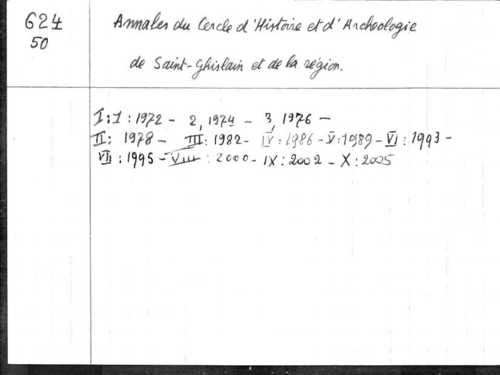 624
50
Annales du Cercle d'Histoire et d'Archeologie
de Saint-Ghislain et de la région.
I:1:1972 - 2,1974 - 3,1976 -
II: 1978 - III: 1982 - IV:1986 - V:1989 - VI:1993 -
VII:1995 - VIII:2000 - IX:2002 - X:2005